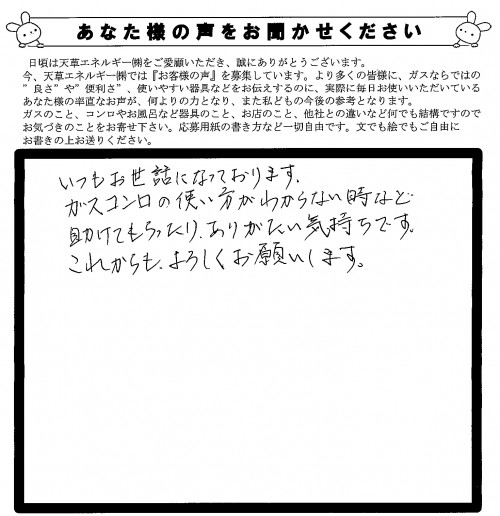 あなた様の声をお聞かせください
日頃は天草エネルギー㈱をご愛顧いただき、誠にありがとうございます。
今、天草エネルギー㈱では『お客様の声』を募集しています。より多くの皆様に、ガスならではの
”良さ”や”便利さ”、使いやすい器具などをお伝えするのに、実際に毎日お使いいただいている
あなた様の率直なお声が、何よりの力となり、また私どもの今後の参考となります。
ガスのこと、コンロやお風呂など器具のこと、お店のこと、他社との違いなど何でも結構ですので
お気づきのことをお寄せ下さい。応募用紙の書き方など一切自由です。文でも絵でもご自由に
お書きの上お送りください。
いつもお世話になっております。
ガスコンロの使い方がわからない時など
助けてもらったり、ありがたい気持ちです。
これからも、よろしくお願いします。